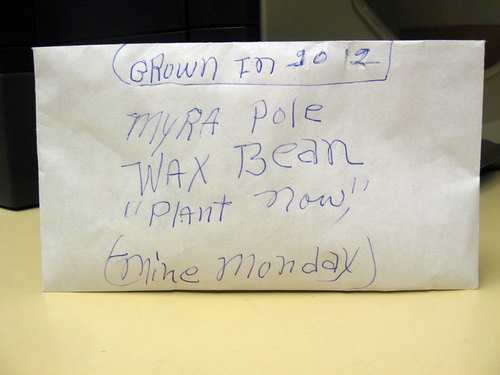 (GROWN In 2012
MyRA Pole
WAX Bean
"Plant now,"
(mine monday)